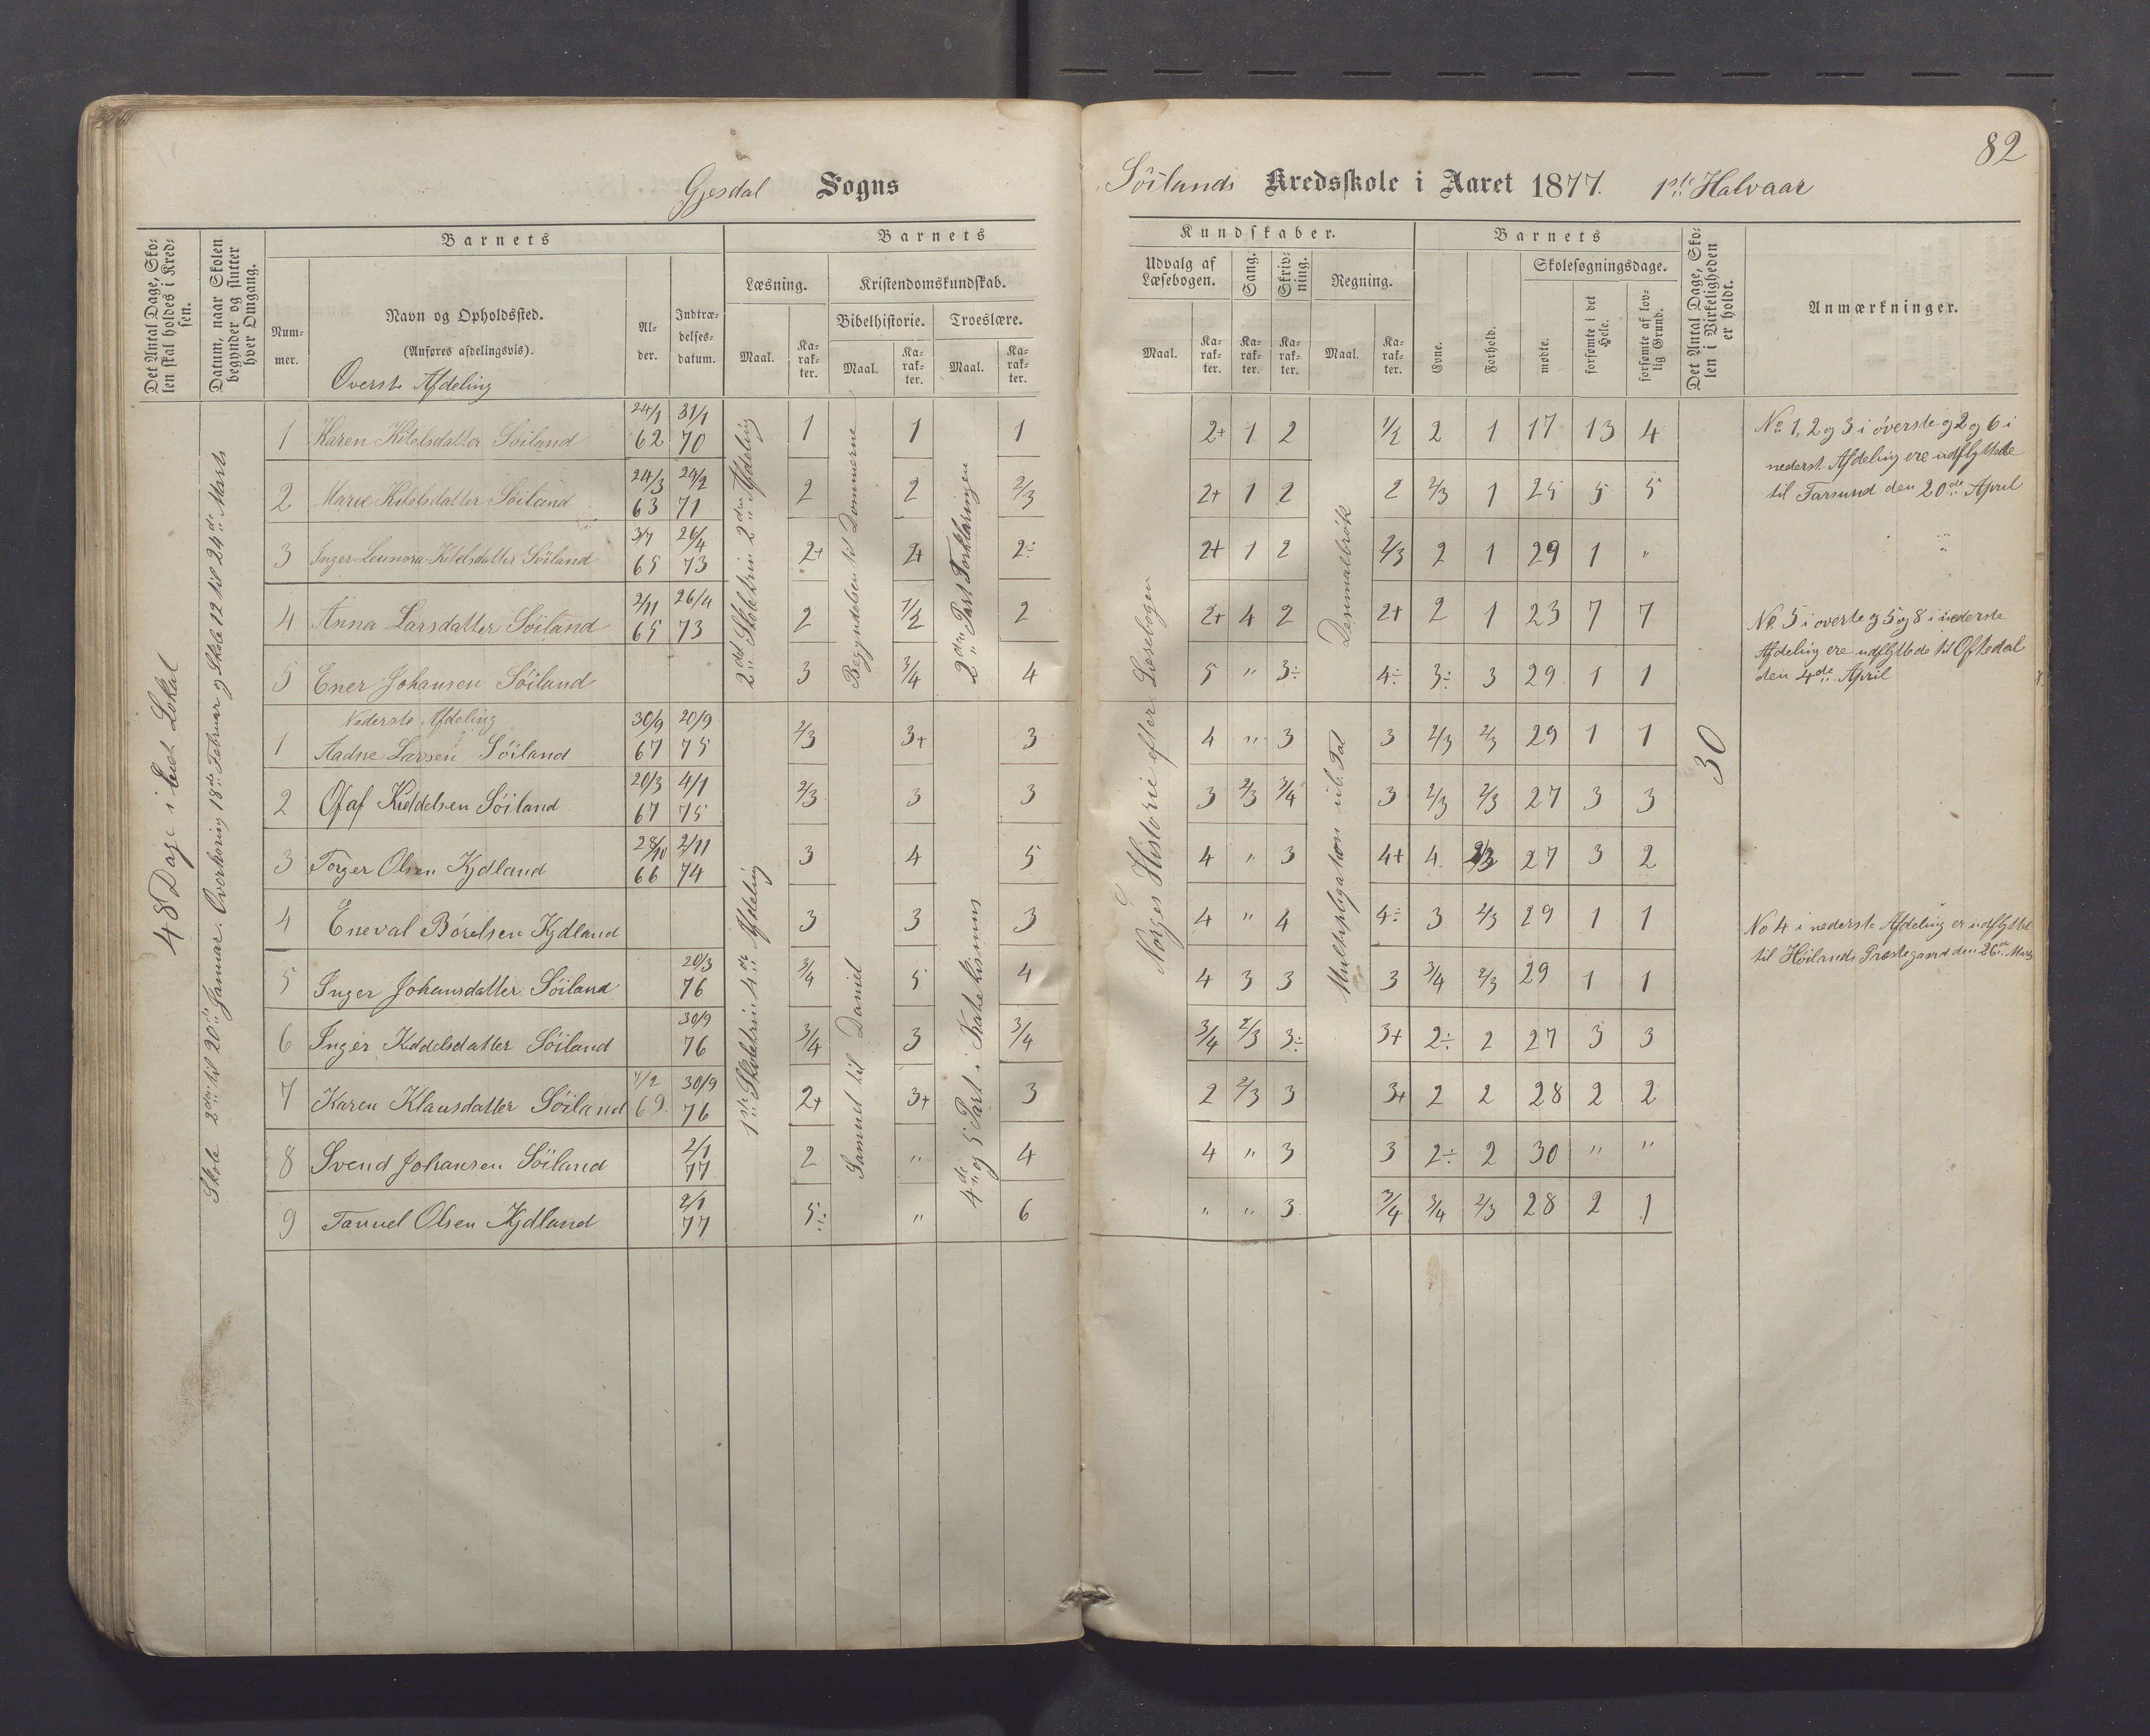 82
Gjesdal Sogns
Söilands Kredsskole i Aaret 1877. 1ste Halvaar
Det Antal Dage, Sko-
len skal holdes i Kred-
sen.
Datum, naar Skolen
begynder og slutter
hver Omgang.
Barnets
Num-
mer.
Navn og Opholdssted.
(Anføres afdelingsvis).
Al-
der.
Indtræ-
delses-
datum.
Barnets
Læsning.
Maal.
Ka-
rak-
ter.
Kristendomskundskab.
Bibelhistorie.
Maal.
Ka-
rak-
ter.
Troeslære.
Maal.
Ka-
rak-
ter.
Kundskaber.
Udvalg af
Læsebogen.
Maal.
Ka-
rak-
ter.
Sang.
Ka-
rak-
ter.
Skriv-
ning.
Ka-
rak-
ter.
Regning.
Maal.
Ka-
rak-
ter.
Barnets
Evne.
Forhold.
Skolesøgningsdage.
mødte.
forsømte i det
Hele.
forsømte af lov-
lig Grund.
Det Antal Dage, Sko-
len i Virkeligheden
er holdt.
Anmærkninger.
48 Dage i Lokal
Skole 2den til 20de Januar. Overhøring 18de Februar og Skole 12 til 24de Marts
2det Skoletrin 2den Afdeling
Begyndelsen til Dommerne
2den Part Forklaringen
1ste Skoletrin 4de Afdeling
Samuel til Daniel
4de og 5 Part i Katekismus
Norges Historie efter Læsebogen
Desimalbrök
Multipligation ub. Tal
30
Överste Afdeling
1 Karen Kitelsdatter Söiland 24/1 62 31/1 70 1 1 1 2+ 1 2 1/2 2 1 17 13 4
2 Marie Kitelsdatter Söiland 24/3 63 24/2 71 2 2 2/3 2+ 1 2 2 2/3 1 25 5 5
3 Inger Leonora Kitelsdatter Söiland 3/7 65 26/4 73 2+ 2+ 2÷ 2+ 1 2 2/3 2 1 29 1 "
4 Anna Larsdatter Söiland 2/11 65 26/4 73 2 1/2 2 2+ 4 2 2+ 2 1 23 7 7
5 Ener Johansen Söiland 3 3/4 4 5 " 3÷ 4÷ 3÷ 3 29 1 1
Nederste Afdeling
1 Aadne Larsen Söiland 30/9 67 20/9 75 2/3 3+ 3 4 " 3 3 2/3 2/3 29 1 1
2 Olaf Kieldelsen Söiland 20/3 67 4/1 75 2/3 3 3 3 2/3 3/4 3 2/3 2/3 27 3 3
3 Torger Olsen Kydland 28/10 66 2/11 74 3 4 5 4 " 3 4+ 4 2/3 27 3 2
4 Eneval Börelsen Kydland 3 3 3 4 " 4 4÷ 3 2/3 29 1 1
5 Inger Johansdatter Söiland 20/3 76 3/4 5 4 4 3 3 3 3/4 2/3 29 1 1
6 Inger Kiddelsdatter Söiland 30/9 76 3/4 3 3/4 3/4 2/3 3÷ 3+ 2÷ 2 27 3 3
7 Karen Klausdatter Söiland 7/2 69 30/9 76 2+ 3+ 3 2 2/3 3 3+ 2 2 28 2 2
8 Svend Johansen Söiland 2/1 77 2 " 4 4 " 3 3 2÷ 2 30 " "
9 Tarvel Olsen Kydland 2/1 77 5÷ " 6 " " 3 3/4 3/4 2/3 28 2 1
No 1, 2 og 3 i överste og 2 og 6 i
nederst. Afdeling ere udflyttede
til Farsund den 20de April
No. 5 i överte og 5 og 8 i nederste
Afdeling ere udflyttede til Oftedal
den 4de April
No 4 i nederste Afdeling er udflyttet
til Höilands Præstegaard den 26de Marts